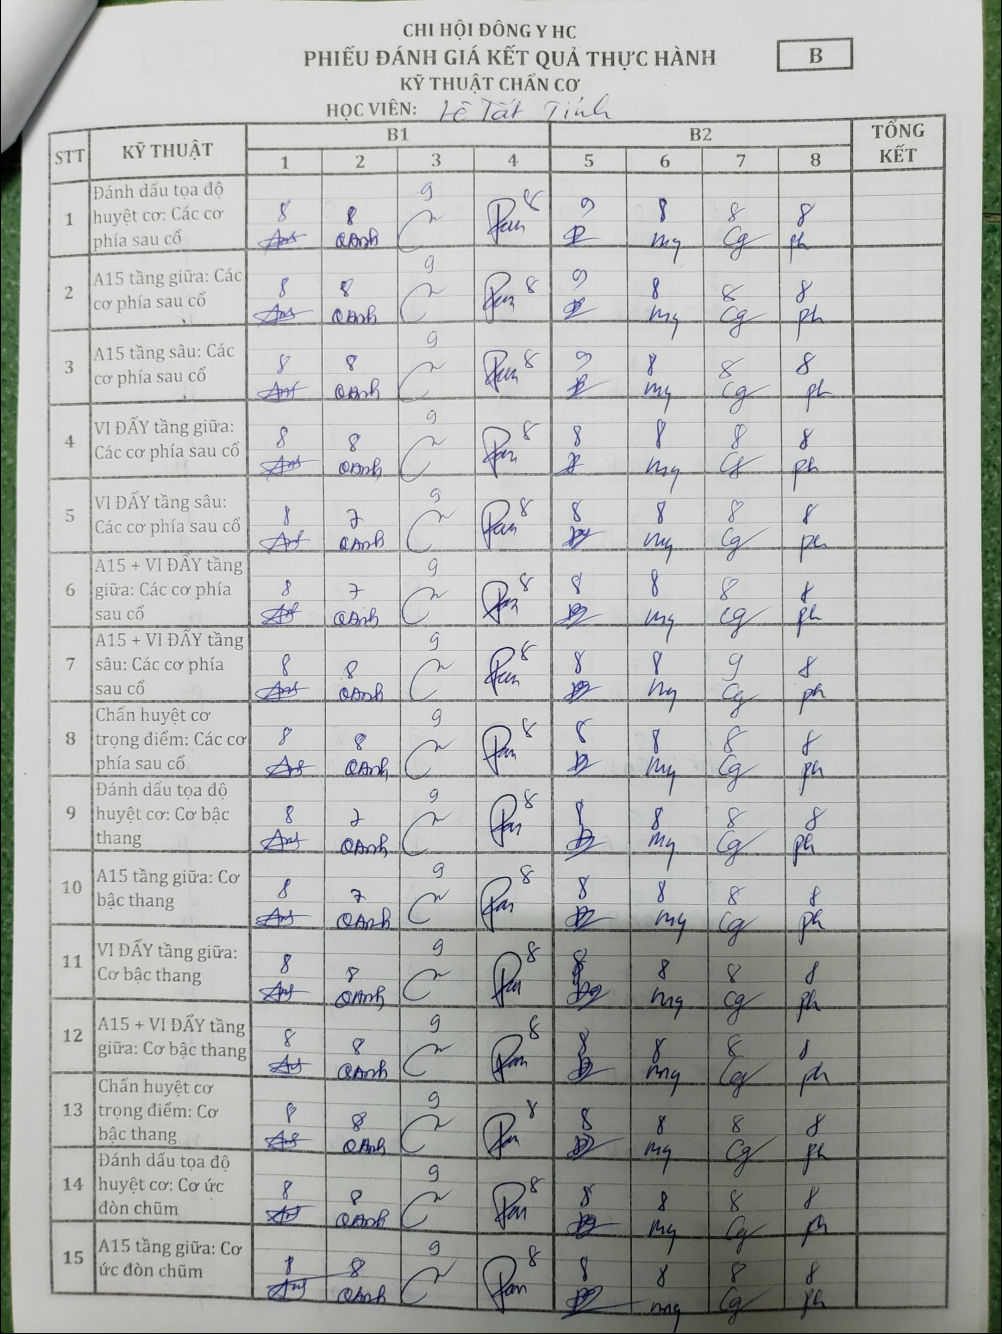 CHI HỘI ĐÔNG Y HC
PHIẾU ĐÁNH GIÁ KẾT QUẢ THỰC HÀNH
B
KỸ THUẬT CHẨN CƠ
HỌC VIÊN: Lê Tất Tính
STT KỸ THUẬT B1 B2 TỔNG KẾT
1 2 3 4 5 6 7 8
1 Đánh dấu tọa độ huyệt cơ: Các cơ phía sau cổ 8 8 9 8 9 8 8 8
QAnh my Cg ph
2 A15 tầng giữa: Các cơ phía sau cổ 8 8 9 8 9 8 8 8
QAnh my Cg ph
3 A15 tầng sâu: Các cơ phía sau cổ 8 8 9 8 9 8 8 8
QAnh my Cg ph
4 VI ĐẨY tầng giữa: Các cơ phía sau cổ 8 8 9 8 8 8 8 8
QAnh my Cg ph
5 VI ĐẨY tầng sâu: Các cơ phía sau cổ 8 7 9 8 8 8 8 8
QAnh my Cg ph
6 A15 + VI ĐẨY tầng giữa: Các cơ phía sau cổ 8 7 9 8 8 8 8 8
QAnh my Cg ph
7 A15 + VI ĐẨY tầng sâu: Các cơ phía sau cổ 8 8 9 8 8 8 9 8
QAnh my Cg ph
8 Chẩn huyệt cơ trọng điểm: Các cơ phía sau cổ 8 8 9 8 8 8 8 8
QAnh my Cg ph
9 Đánh dấu tọa độ huyệt cơ: Cơ bậc thang 8 7 9 8 8 8 8 8
QAnh my Cg ph
10 A15 tầng giữa: Cơ bậc thang 8 7 9 8 8 8 8 8
QAnh my Cg ph
11 VI ĐẨY tầng giữa: Cơ bậc thang 8 8 9 8 8 8 8 8
QAnh my Cg ph
12 A15 + VI ĐẨY tầng giữa: Cơ bậc thang 8 8 9 8 8 8 8 8
QAnh my Cg ph
13 Chẩn huyệt cơ trọng điểm: Cơ bậc thang 8 8 9 8 8 8 8 8
QAnh my Cg ph
14 Đánh dấu tọa độ huyệt cơ: Cơ ức đòn chũm 8 8 9 8 8 8 8 8
QAnh my Cg ph
15 A15 tầng giữa: Cơ ức đòn chũm 8 8 9 8 8 8 8 8
QAnh my Cg ph